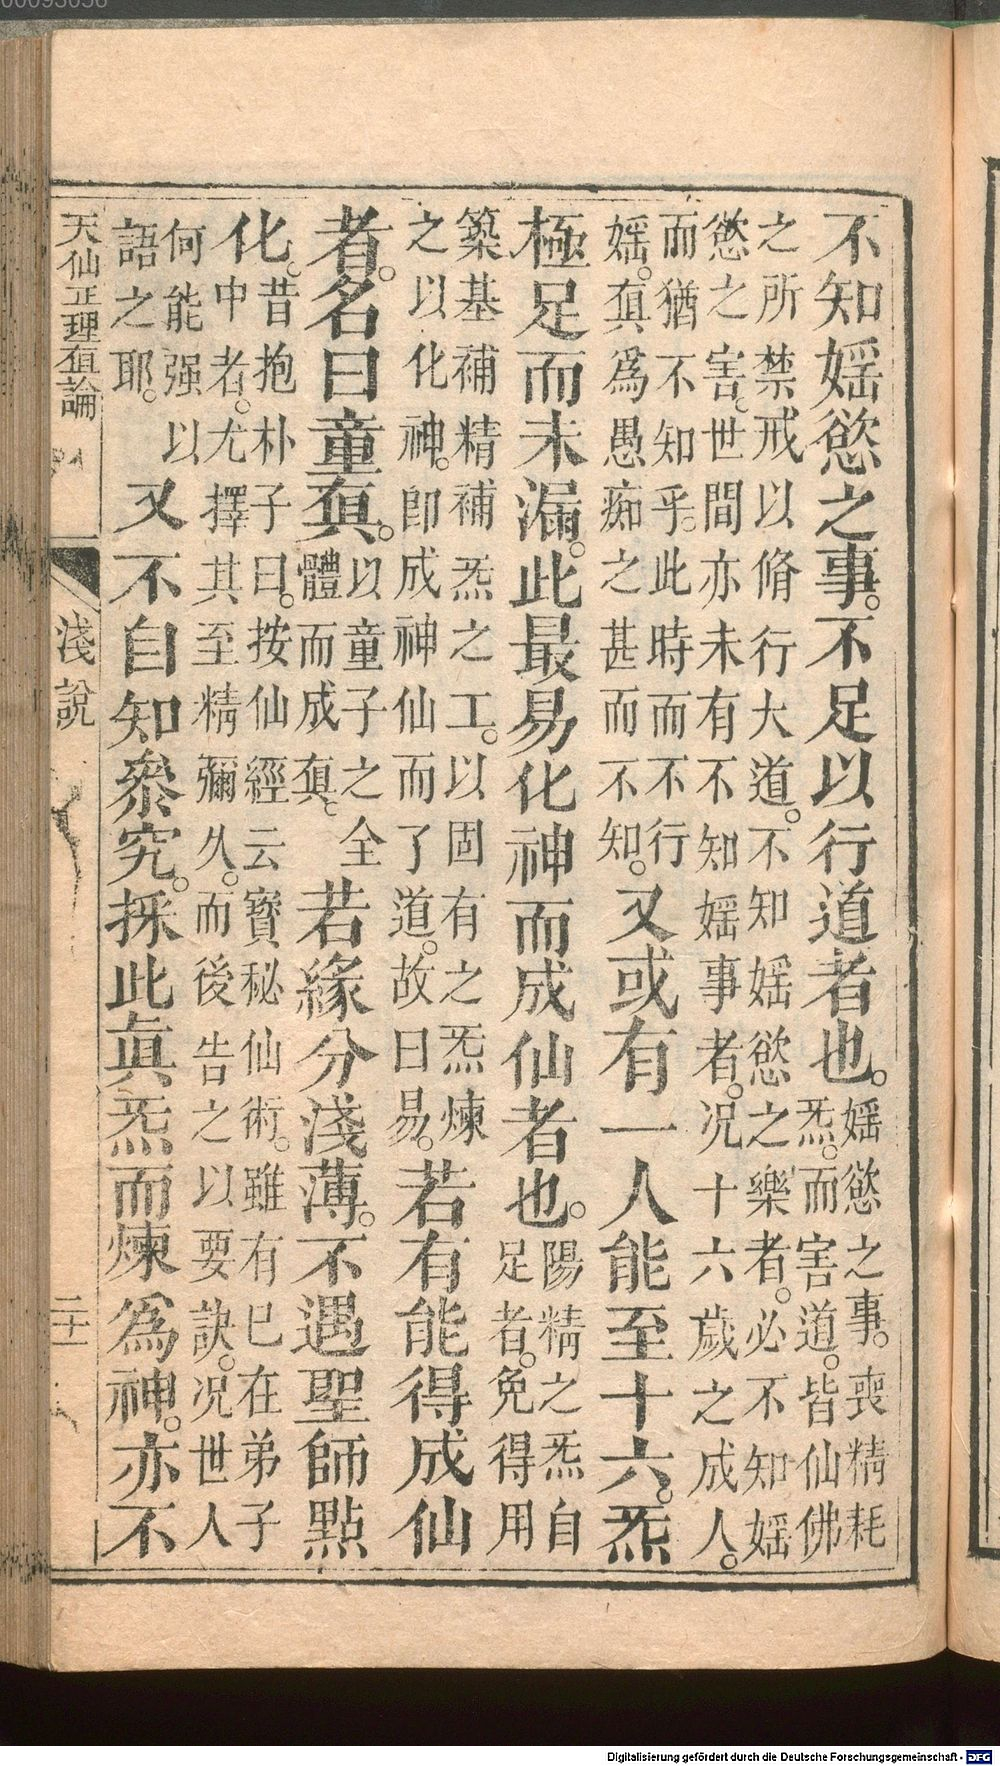 不知婬慾之事。不足以行道者也。
婬慾之事。喪精耗
炁。而害道。皆仙佛
之所禁戒以脩行大道。不知婬慾之樂者。必不知婬
慾之害。世間亦未有不知婬事者。况十六歲之成人。
而猶不知乎。此時而不行
婬。眞爲愚痴之甚而不知。
又或有一人能至十六。炁
極足而未漏。此最易化神而成仙者也。
陽精之炁自
足者。免得用
築基補精補炁之工。以固有之炁煉
之以化神。即成神仙而了道。故曰易。
若有能得成仙
者。名曰童眞。
以童子之全
體而成眞。
若緣分淺薄。不遇聖師點
化。
昔抱朴子曰。按仙經云寶秘仙術。雖有巳在弟子
中者。尤擇其至精彌久。而後告之以要訣。况世人
何能强以
語之耶。
又不自知叅究。採此眞炁而煉爲神。亦不
天仙正理直論
淺說
二十一
Digitalisierung gefördert durch die Deutsche Forschungsgemeinschaft - DFG